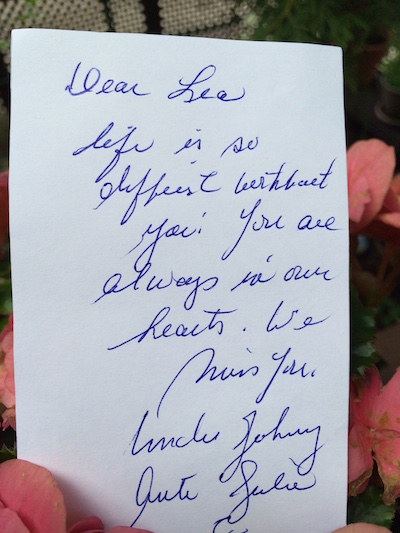 Dear Lea
life is so
different without
you! You are
always in our
hearts. We
miss You.
Uncle Johny
Ante Julie